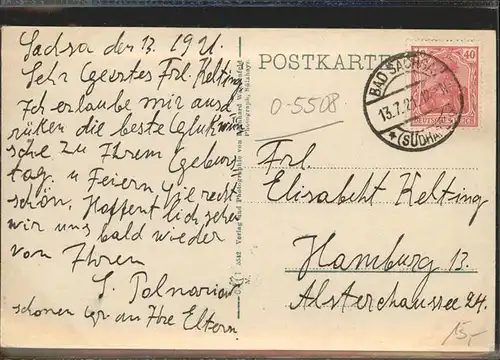 Sachsa den 13. 1921.
Sehr Geertes Frl. Kelting
Ich erlaube mir aus
drüken die beste Glukwün
sche zu Ihrem Geburs
tag. u Feiern Sie recht
schön, Hoffentlich sehen
wir uns bald wieder
von Ihrem
schonen Gr. an Ihre Eltern.
POSTKARTE
0-5508
BAD SACHSA
13.7.21
(SÜDHARZ)
40
DEUTSCHES REICH
Frl.
Elisabeht Kelting
Hamburg 13.
Alsterchaussee 24.
15,-